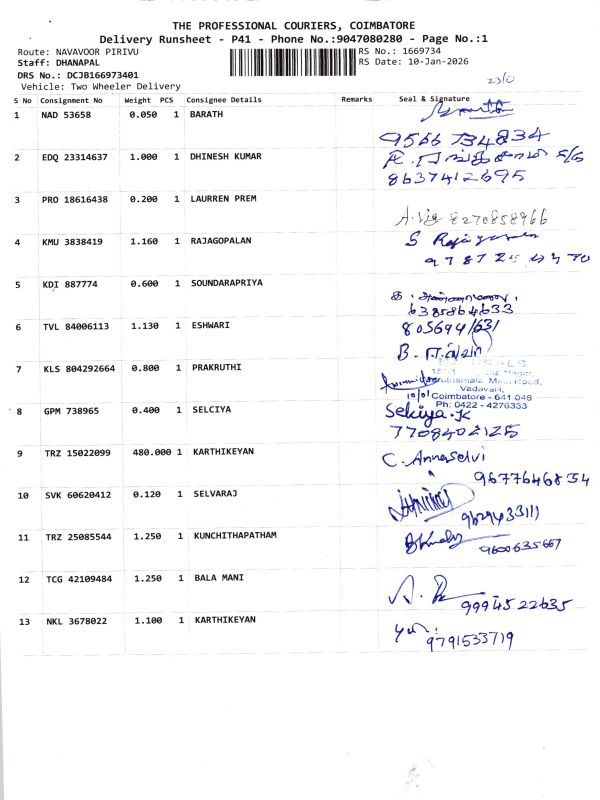 THE PROFESSIONAL COURIERS, COIMBATORE
Delivery Runsheet - P41 - Phone No.:9047080280 - Page No.:1
Route: NAVAVOOR PIRIVU RS No.: 1669734
Staff: DHANAPAL RS Date: 10-Jan-2026
DRS No.: DCJB166973401
Vehicle: Two Wheeler Delivery
S No Consignment No Weight PCS Consignee Details Remarks Seal & Signature
1 NAD 53658 0.050 1 BARATH
9566734834
2 EDQ 23314637 1.000 1 DHINESH KUMAR
8637412695
3 PRQ 18616438 0.200 1 LAURREN PREM
8270858966
4 KMU 3838419 1.160 1 RAJAGOPALAN S
5 KDI 887774 0.600 1 SOUNDARAPRIYA
6385864633
6 TVL 84006113 1.130 1 ESHWARI
B.
7 KLS 804292664 0.800 1 PRAKRUTHI
Road,
Vadavalli,
10/01 Coimbatore - 641 046
Ph: 0422 - 4276333
8 GPM 738965 0.400 1 SELCIYA Selciya.K
7708402125
9 TRZ 15022099 480.000 1 KARTHIKEYAN C. Annaselvi
9677646834
10 SVK 60620412 0.120 1 SELVARAJ
9629433111
11 TRZ 25085544 1.250 1 KUNCHITHAPATHAM
9600635667
12 TCG 42109484 1.250 1 BALA MANI
9994522635
13 NKL 3678022 1.100 1 KARTHIKEYAN
9791533719